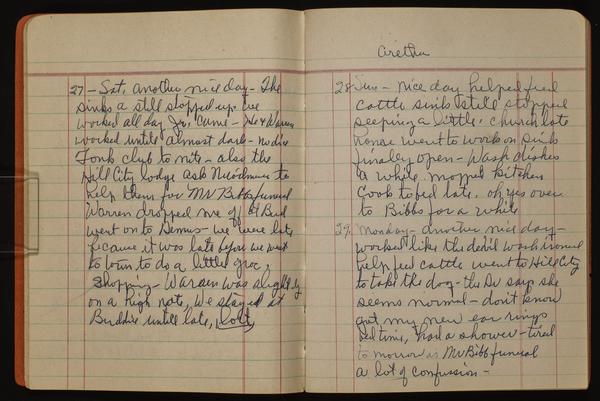 27 - Sat. another nice day - The
sinks a still stopped up we
worked all day Jr. Came - He & Warren
worked until almost dark - no dice
Fork club to nite - also the
Hill City lodge ask to
help them for Mr Bibb funeral
Warren dropped me off at Bud
went on to - we were late
because it was late before we went
to town to do a little groc,
shopping - Warren was slightly
on a high note, we stayed at
Buddie until late,
Aretha
28 Sun - nice day helped feed
cattle sink still stopped
sleeping a little. church late
house went to work on sink
finally open - Wash dishes
a while mopped kitchen
Cook to bed late. oh yes over
to Bibbs for a while
29 Monday - another nice day -
worked like the devil wash ironed
help feed cattle went to Hill City
to take the dog - the Dr say she
seems normal - don't know
got my new ear rings
bed time, had a shower - tired
to morrow is Mr Bibb funeral
a lot of confussion -